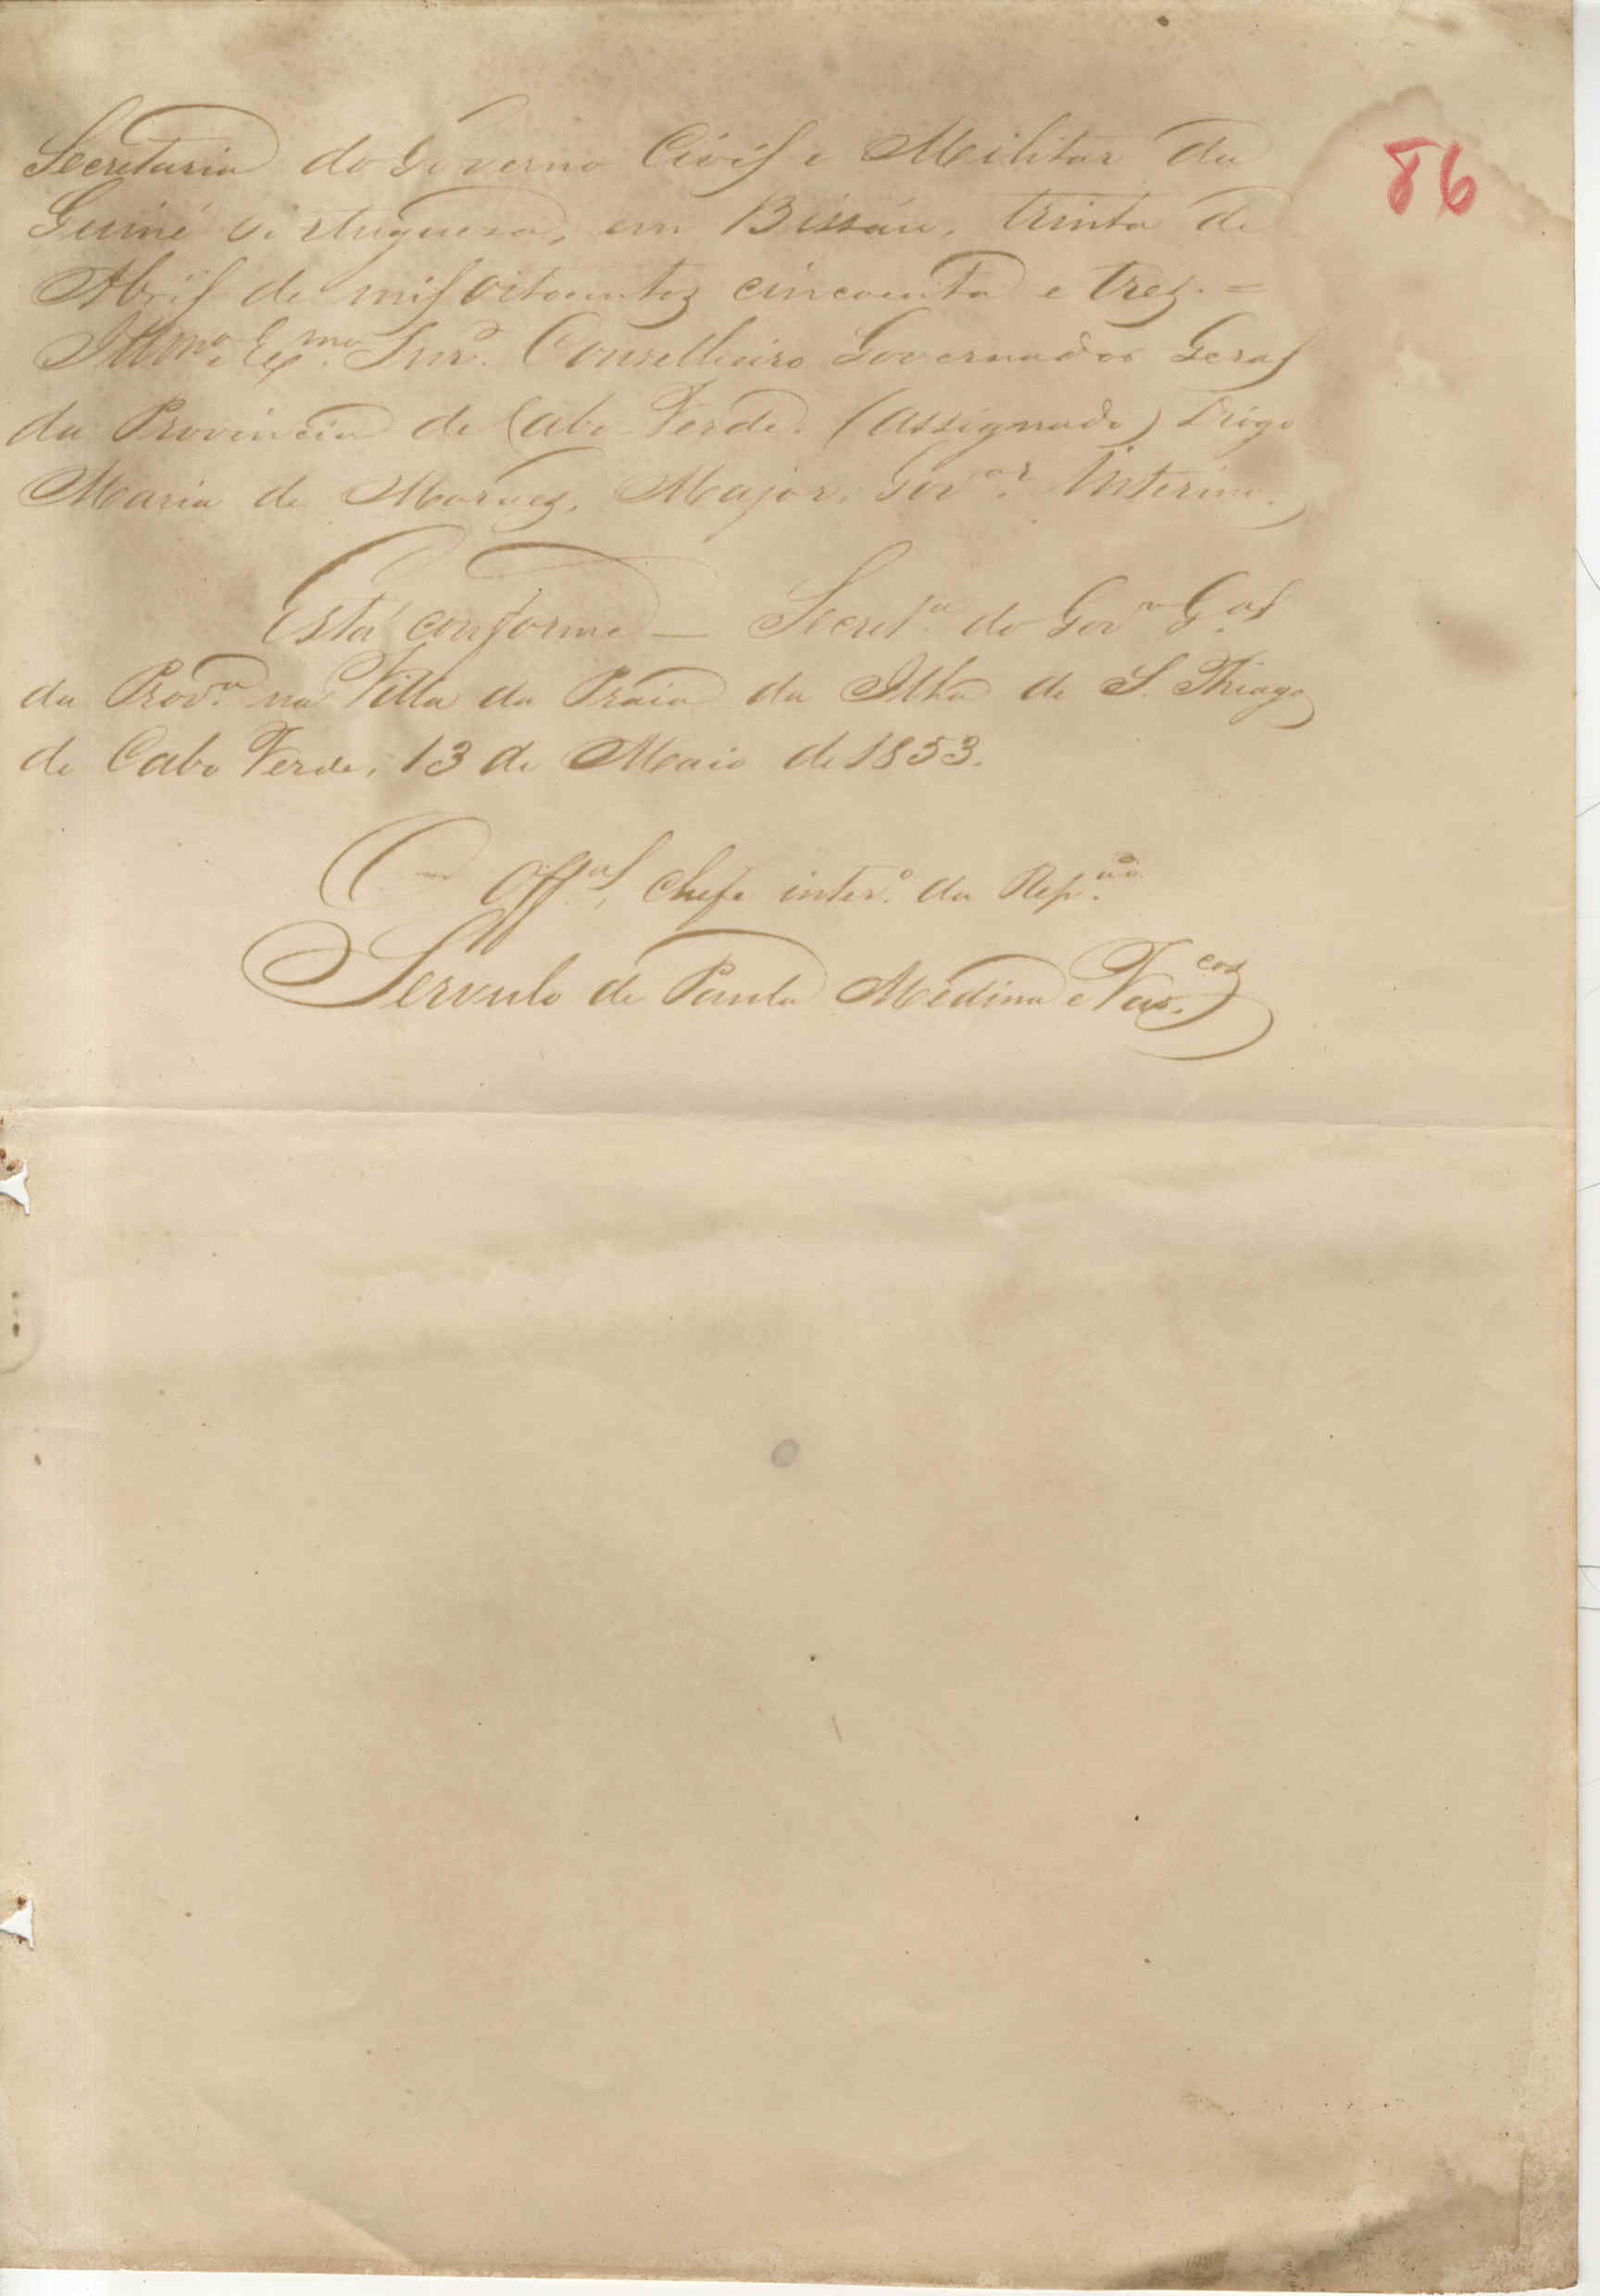 86
Secretaria do Governo Civil e Militar da
Guiné Portuguesa, em Bissáu, trinta de
Abril de mil oitocentos cincoenta e trez. =
Illmo. e Exmo. Snr. Conselheiro Governador Geral
da Provincia de Cabo Verde. (assignado) Diogo
Maria de Moraes, Major, Govor. Interino.
Está conforme — Secreta. do Govo. Gal
da Prova. na Villa da Praia da Ilha de S. Thiago
de Cabo Verde, 13 de Maio de 1853.
O Offal, Chefe intero. da Repam.
Servulo de Paula Medina e Vascos.